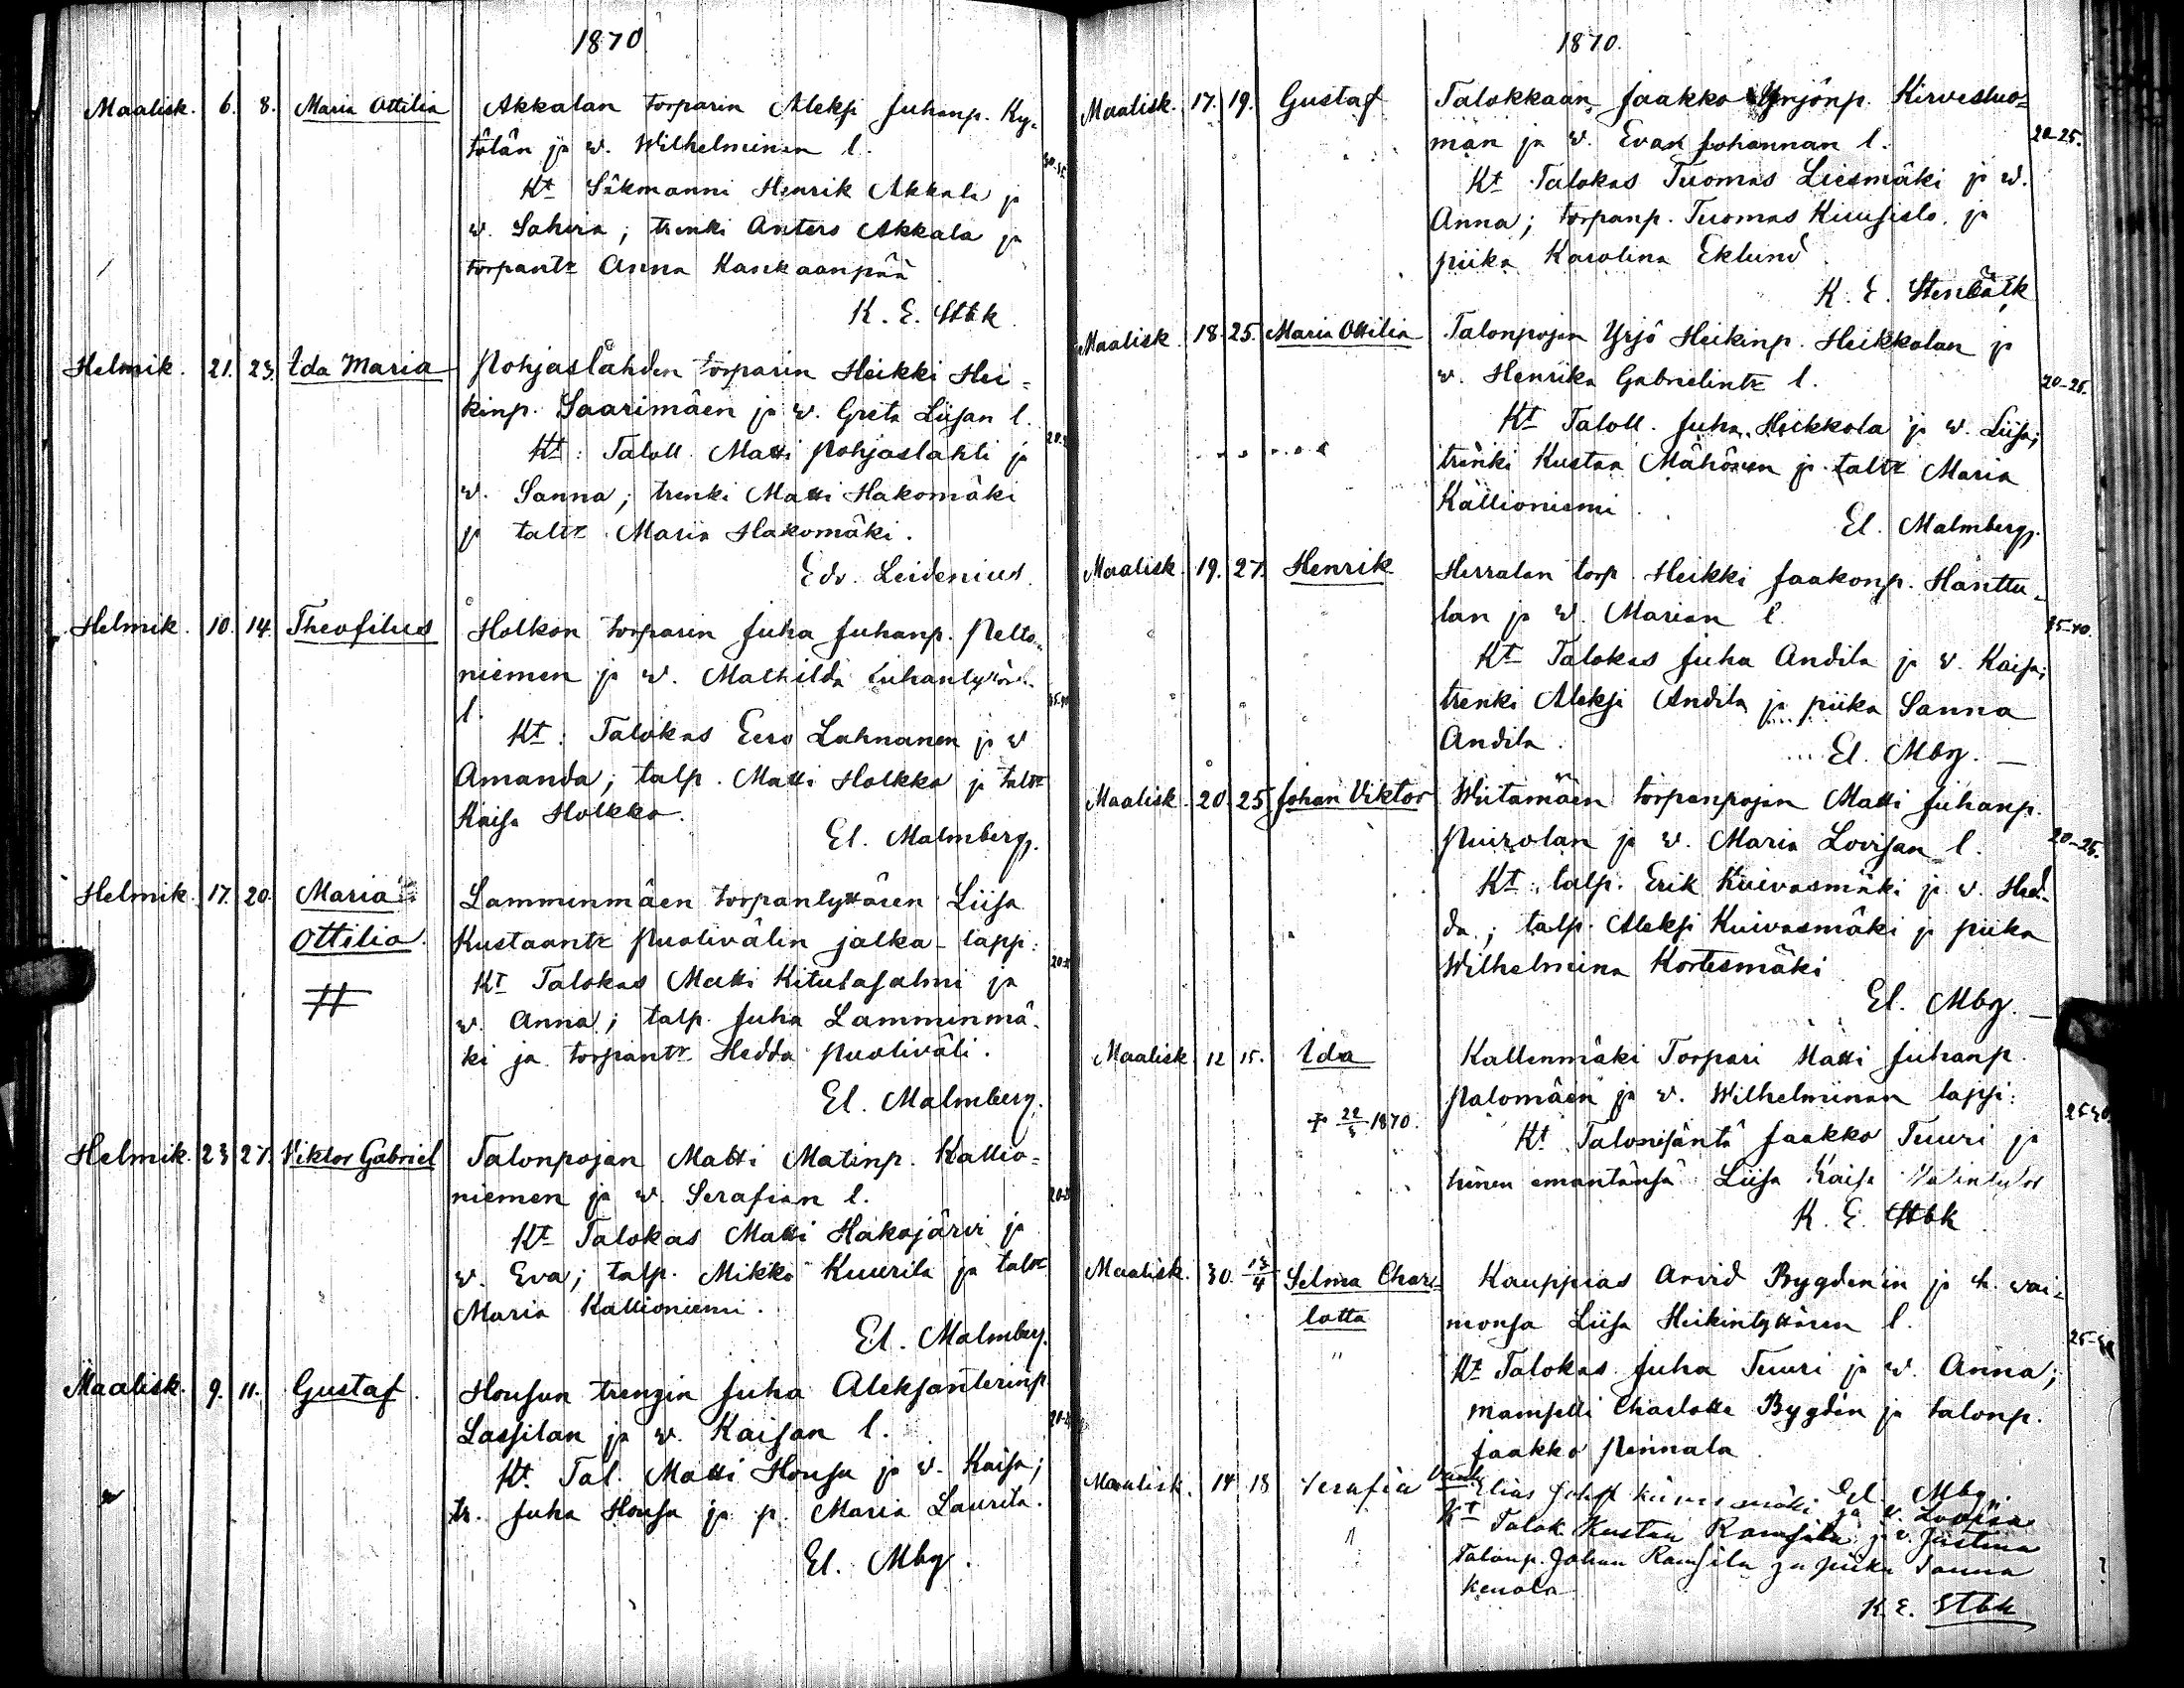 1870
Maalisk. 6. 8. Maria Ottilia Akkalan torparin Aleksi Juhanp. Ky-
tölän ja w. Wilhelminan l.
Kt Sikmanni Henrik Akkala ja
w. Sahira; trenki Anters Akkala ja
torpantr Anna Kankaanpää
K. E. Stbk
Helmik. 21. 23. Ida Maria Pohjaslahden torparin Heikki Hei-
kinp. Saarimäen ja w. Greta Liisan l.
Kt: Taloll. Matti Pohjaslahti ja
w. Sanna; trenki Matti Hakomäki
ja taltr Maria Hakomäki.
Edv. Leidenius.
Helmik. 10. 14. Theofilus Holkon torparin Juha Juhanp. Pelto-
niemen ja w. Mathilda
l.
Kt: Talokas Eero Lahnanen ja w
Amanda; talp. Matti Holkko ja taltr
Kaisa Holkko.
El. Malmberg.
Helmik. 17. 20. Maria Lamminmäen torpanlyttären Liisa
Ottilia. Kustaantr Puolivälin jalka-lapp:
Kt Talokas Matti Kitulasalmi ja
w. Anna; talp. Juha Lamminmä-
ki ja torpantr. Hedda Puoliväli.
El. Malmberg.
Helmik. 23 27. Viktor Gabriel Talonpojan Matti Matinp. Kallio-
niemen ja w. Serafian l.
Kt Talokas Matti Hakojärvi ja
w. Eva; talp. Mikko Kuurila ja taltr
Maria Kallioniemi.
El. Malmberg.
Maalisk. 9. 11. Gustaf. Housun trengin Juha Aleksanterinp
Lassilan ja w. Kaisan l.
Kt. Tal. Matti Housu ja w. Kaisa;
tr. Juha Housu ja p. Maria Laurila.
El. Mbg.
1870.
Maalisk. 17. 19. Gustaf Talokkaan Jaakko Yrjönp. Kirvesluo-
man ja w. Evan Johannan l.
20-25.
Kt Talokas Tuomas Liesmäki ja w.
Anna; torpanp. Tuomas Kiusislo. ja
piika Karolina Eklund
K. E. Stenbäck
Maalisk. 18. 25. Maria Ottilia Talonpojan Yrjö Heikinp. Heikkolan ja
w. Henrika Gabrielintr l.
20-25.
Kt Taloll. Juha Heikkola ja w. Liisa;
trenki Kustaa Mähönen ja taltr Maria
Kallioniemi
El. Malmberg.
Maalisk. 19. 27. Henrik Herralan torp. Heikki Jaakonp. Hanttu-
lan ja w. Marian l.
35-40.
Kt Talokas Juha Andila ja w. Kaisa;
trenki Aleksi Andila ja piika Sanna
Andila.
El. Mbg.
Maalisk. 20 25 Johan Viktor Wiitamäen torpanpojan Matti Juhanp.
Puirolan ja w. Maria Lovisan l.
20-25.
Kt: talp. Erik Kuivasmäki ja w. Hed-
da; talp. Aleksi Kuivasmäki ja piika
Wilhelmina Kortesmäki
El. Mbg.
Maalisk 12 15. Ida Kallenmäki Torpari Matti Juhanp.
Palomäen ja w. Wilhelminan lapsi:
† 22/3 1870.
Kt Talonisäntä Jaakko Tuuri ja
hänen emäntänsä Liisa Kaisa
K. E. Stbk
Maalisk. 30. 13/4 Selma Char- Kauppias Arvid Bygden'in ja h. wai-
lotta monsa Liisa Heikinlyttären l.
Kt Talokas Juha Tuuri ja w. Anna;
mamselli Charlotta Bygden ja talonp.
Jaakko Pennala
El. Mbg.
Maalisk. 14 18 Serafia Elias ja w. Lovisa
Kt Talok Kustaa Ramsila ja w. Justina
Talonp. Johan Ramsila ja piika Sanna
Kenola
K. E. Stbk